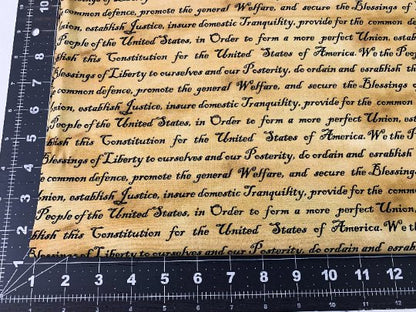 common defence, promote the general Welfare, and secure the Blessings of
Union, establish Justice, insure domestic Tranquility, provide for the common
People of the United States, in Order to form a more perfect Union, est
blish this Constitution for the United States of America. We the Peop
Blessings of Liberty to ourselves and our Posterity, do ordain and establish
common defence, promote the general Welfare, and secure the Blessings
nion, establish Justice, insure domestic Tranquility, provide for the common
People of the United States, in Order to form a more perfect Union, est
blish this Constitution for the United States of America. We the P
Blessings of Liberty to ourselves and our Posterity, do ordain and establish
common defence, promote the general Welfare, and secure the Blessing
nion, establish Justice, insure domestic Tranquility, provide for the com
People of the United States, in Order to form a more perfect Union.
blish this Constitution for the United States of America. We the
Blessings of Liberty to ourselves and our Posterity, do ordain and establish
10
9
8
7
6
5
4
3
2
1
1 2 3 4 5 6 7 8 9 10 11 12